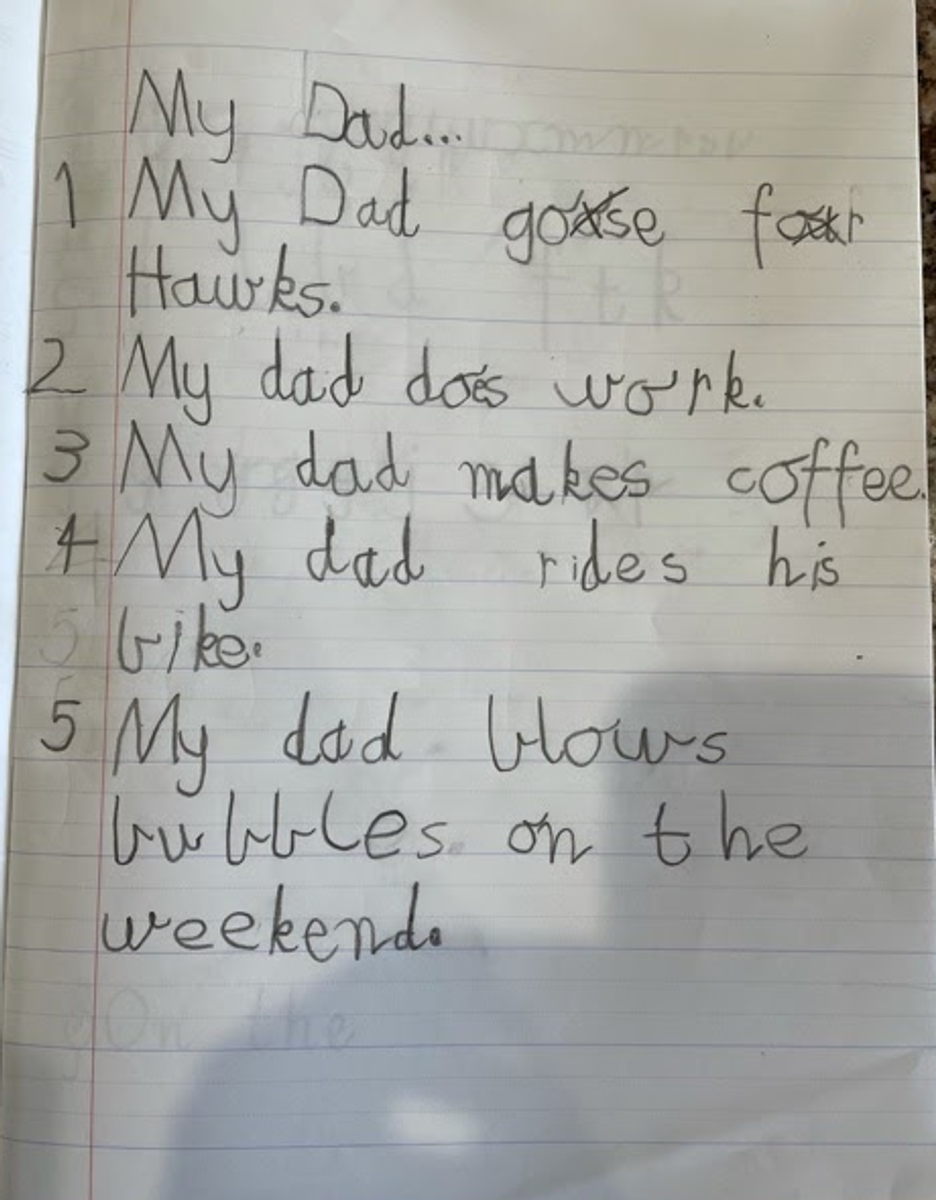 My Dad...
1 My Dad gose for
Hawks.
2 My dad does work.
3 My dad makes coffee.
4 My dad rides his
5 bike.
5 My dad blows
bubbles on the
weekend.
On the